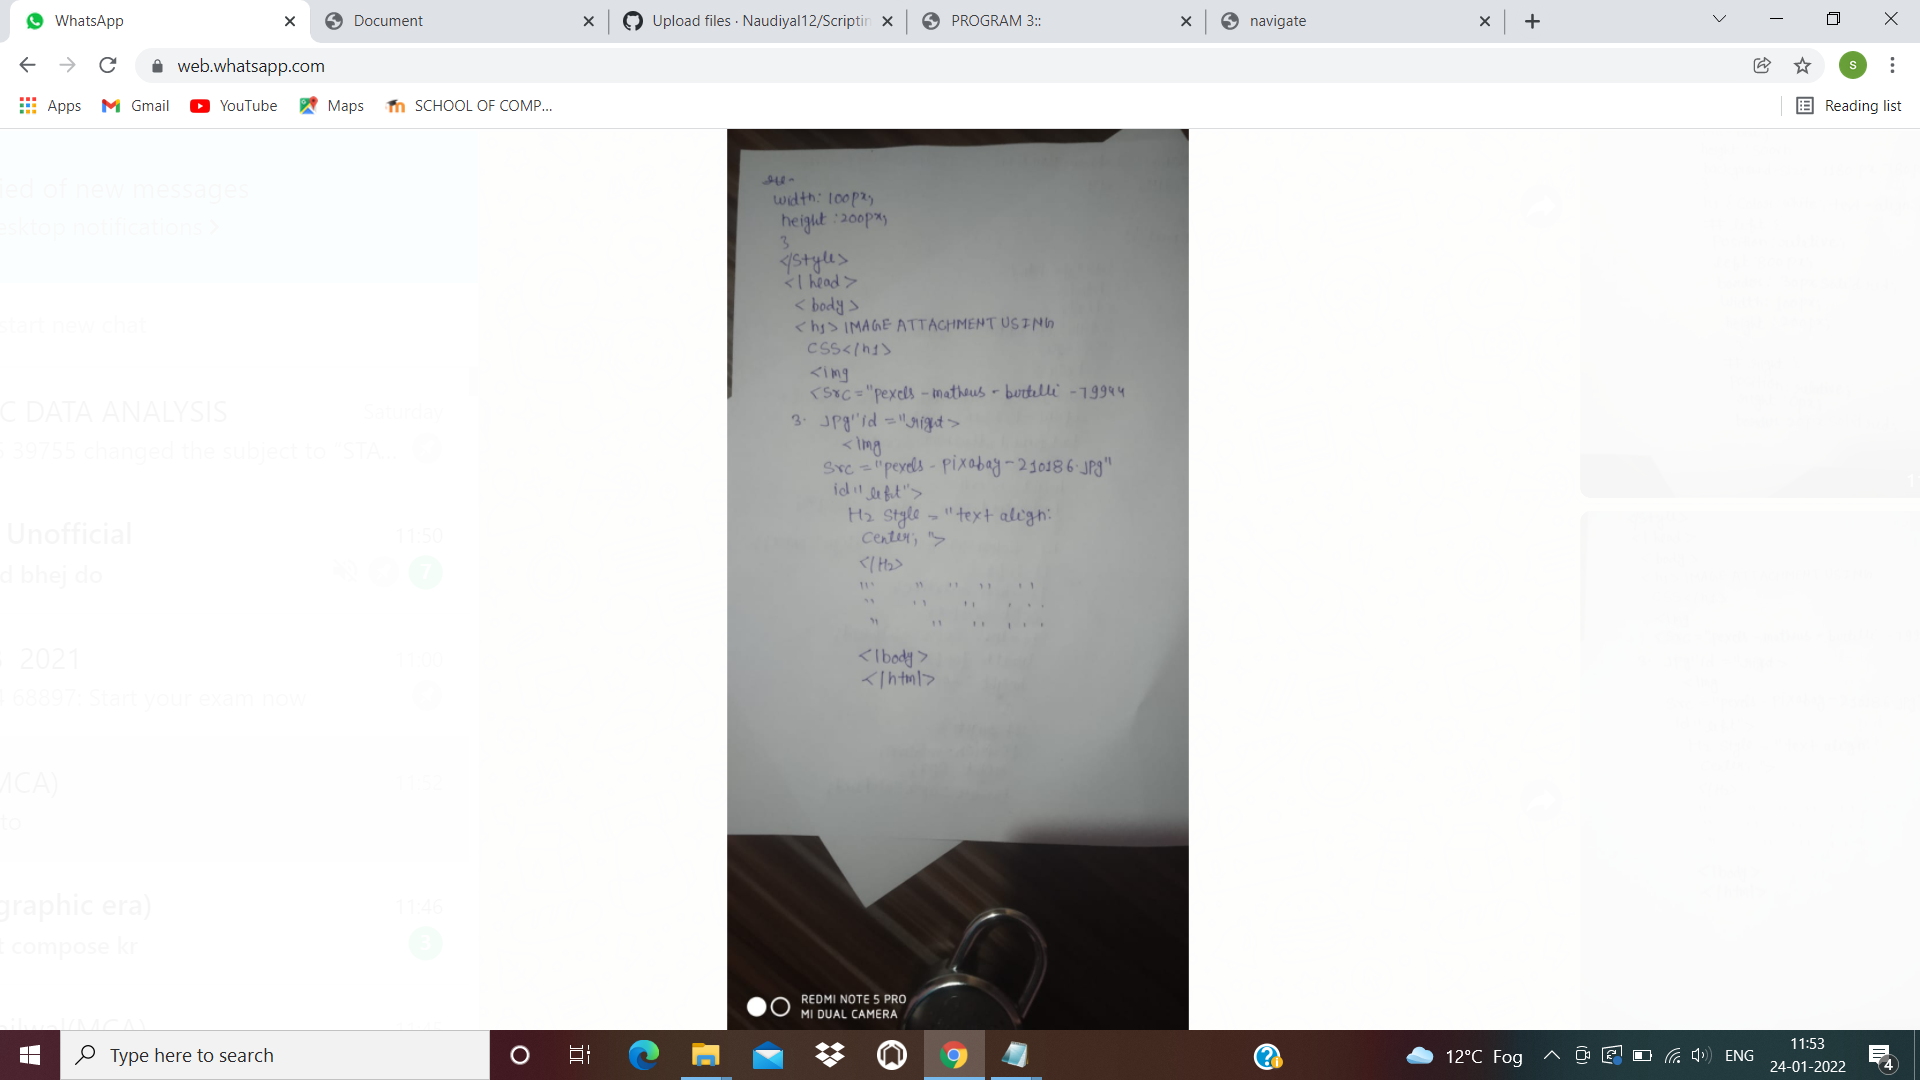 WhatsApp
Document
Upload files · Naudiyal12/Scriptin
PROGRAM 3::
navigate
web.whatsapp.com
S
Apps
Gmail
YouTube
Maps
SCHOOL OF COMP...
Reading list
ied of new messages
esktop notifications
start new chat
C DATA ANALYSIS
Saturday
39755 changed the subject to "STA...
Unofficial
11:50
d bhej do
7
2021
11:00
68897: Start your exam now
MCA)
11:52
to
graphic era)
11:46
t compose kr
3
width: 100px;
height :200px;
3
</style>
</head>
<body>
<h1> IMAGE ATTACHMENT USING
CSS</h1>
<img
<src="pexels-matheus-bertelli-79944
3. jpg" id ="right>
<img
src ="pexels-pixabay-210186.jpg"
id" left">
H2 style = "text align:
center; ">
</H2>
</body>
</html>
REDMI NOTE 5 PRO
MI DUAL CAMERA
Type here to search
12°C Fog
ENG
11:53
24-01-2022
4